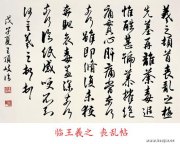 羲之頓首喪亂之極
先墓再離荼毒追
惟酷甚號慕摧絕
痛貫心肝痛當奈何
奈何雖即修復未獲
奔馳哀毒益深奈何
奈何臨紙感哽不知
何言羲之頓首頓首
戊子夏
临王羲之 丧乱帖